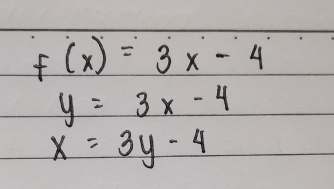 f(x) = 3x - 4
y = 3x - 4
x = 3y - 4